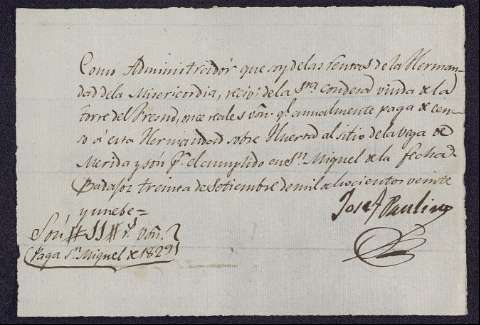 Como Administrador que soy de las rentas de la Herman
dad de la Misericordia, recivi de la Sra condesa viuda de la
torre del Fresno, once reales von. qe. annualmente paga de cen
so á esta Hermandad sobre Huerta al sitio de la Vega de
Merida y son pr. el cumplido en Sn. Miguel de la fecha.
Badajoz treinta de Setiembre de mil ochocientos veinte
y nuebe=
Josef Paulino
Son # 11 # rs. von.
Paga Sn. Miguel de 1829